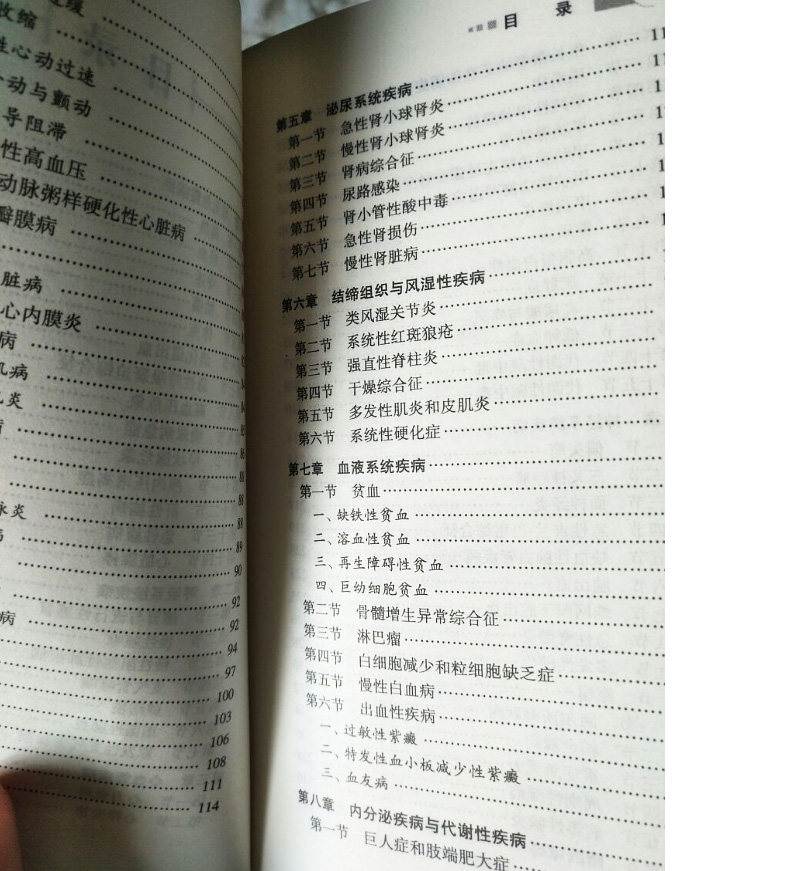 过缓
收缩
性心动过速
动与颤动
导阻滞
性高血压
动脉粥样硬化性心脏病
瓣膜病
脏病
心内膜炎
病
肌病
炎
85
86
88
88
脉炎
88
89
90
92
病
92
94
97
100
103
106
108
111
114
目 录
第五章 泌尿系统疾病
第一节 急性肾小球肾炎
第二节 慢性肾小球肾炎
第三节 肾病综合征
第四节 尿路感染
第五节 肾小管性酸中毒
第六节 急性肾损伤
第七节 慢性肾脏病
第六章 结缔组织与风湿性疾病
第一节 类风湿关节炎
第二节 系统性红斑狼疮
第三节 强直性脊柱炎
第四节 干燥综合征
第五节 多发性肌炎和皮肌炎
第六节 系统性硬化症
第七章 血液系统疾病
第一节 贫血
一、缺铁性贫血
二、溶血性贫血
三、再生障碍性贫血
四、巨幼细胞贫血
第二节 骨髓增生异常综合征
第三节 淋巴瘤
第四节 白细胞减少和粒细胞缺乏症
第五节 慢性白血病
第六节 出血性疾病
一、过敏性紫癜
二、特发性血小板减少性紫癜
三、血友病
第八章 内分泌疾病与代谢性疾病
第一节 巨人症和肢端肥大症